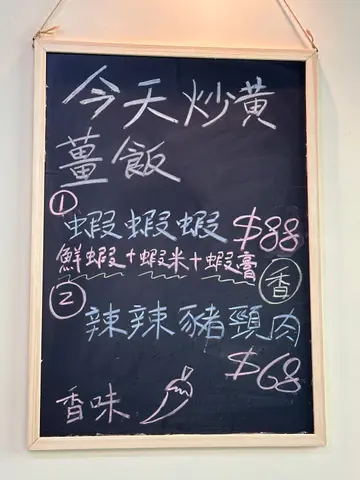 今天炒黃
薑飯
① 蝦蝦蝦 $88
鮮蝦+蝦米+蝦膏 香
② 辣辣豬頸肉
$68
香味